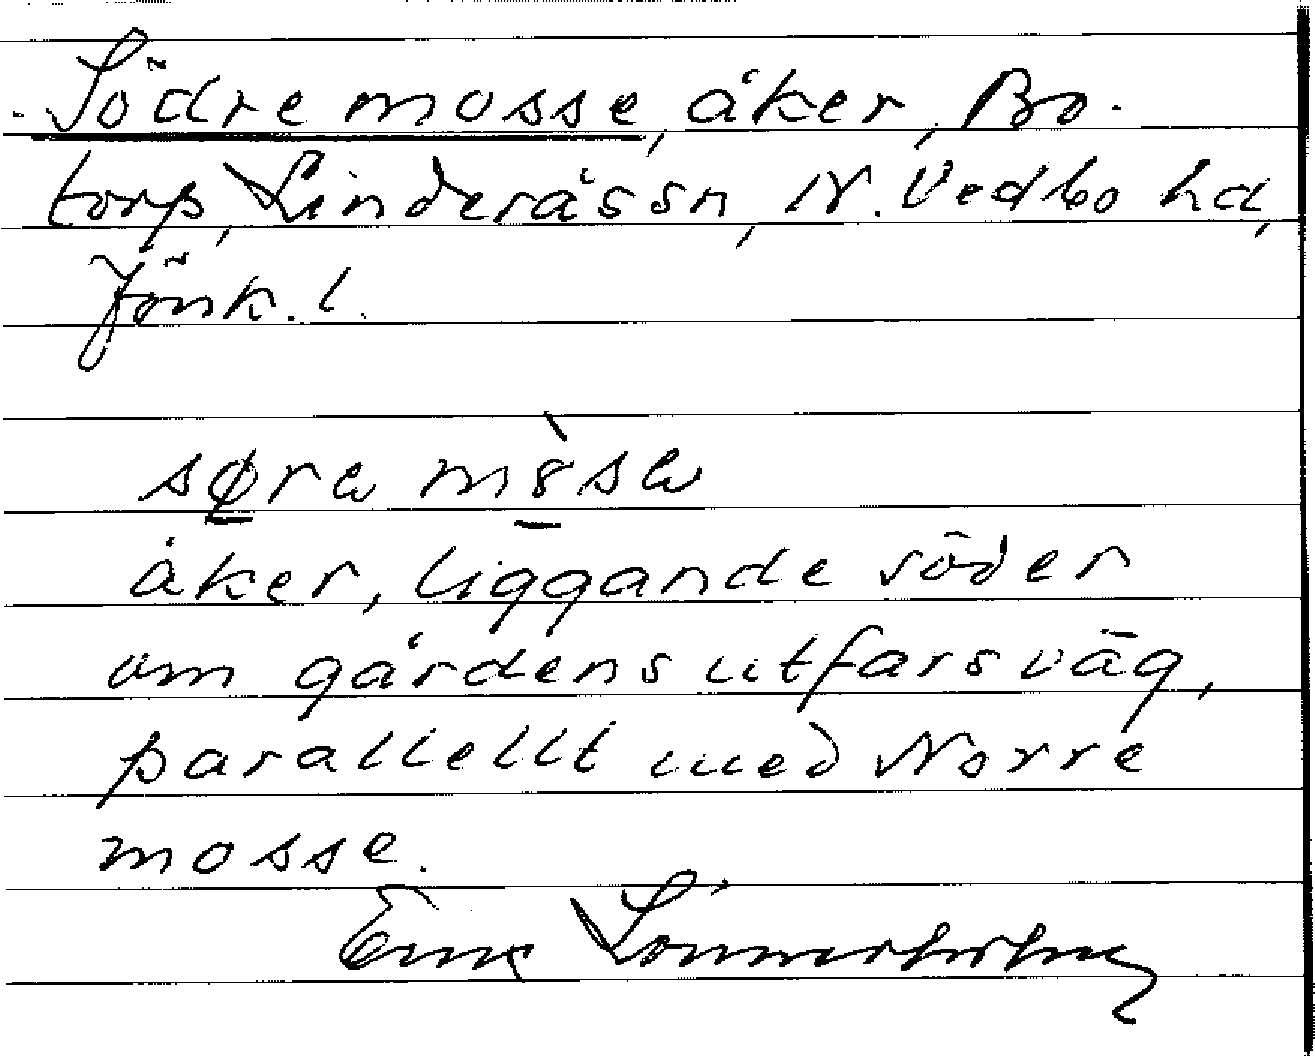 Södre mosse, åker, Bo-
torp, Linderås sn, N. Vedbo hd,
Jönk. l.
åker, liggande söder
om gårdens utfarsväg,
parallellt med Norre
mosse.